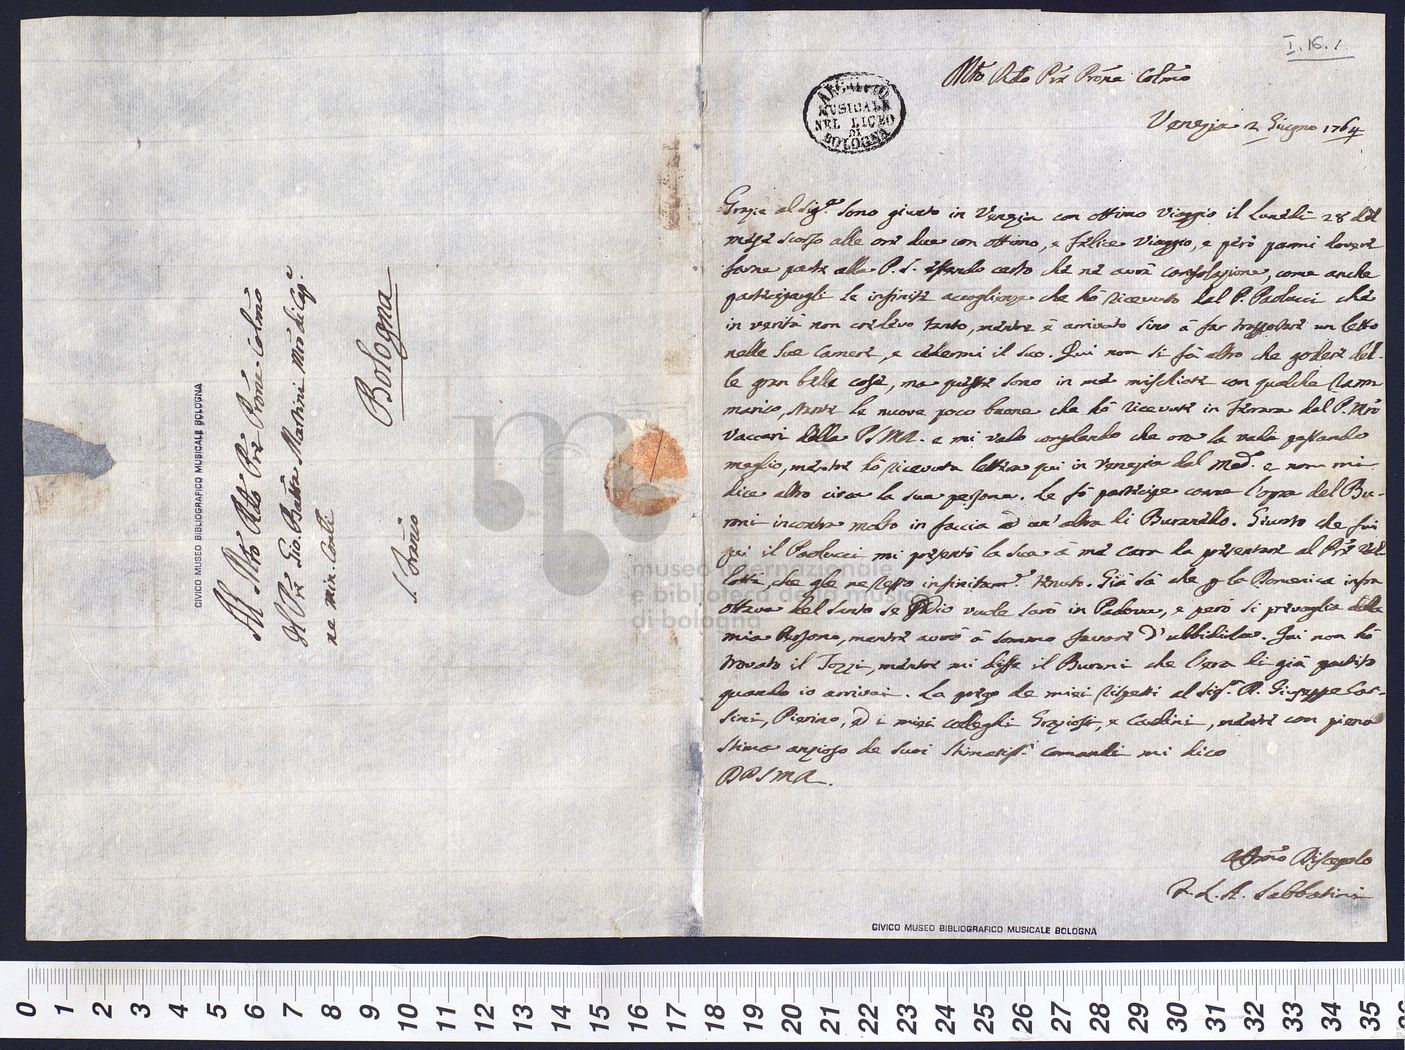 I. 16. 1.
ARCHIVIO
MUSICALE
NEL LICEO
DI
BOLOGNA
Mto Rdo Pre Prone Colmo
Venezia 2 Giugno 1764
Grazie al Sigre sono giunto in Venezia con ottimo Viaggio il Lunedì 28 del
mese scorso alle ore due con ottimo, e felice Viaggio, e però parmi dovere
farne parte alla P. S. essendo certo che ne avrà consolazione, come anche
participargli le infinite accoglienze che hò ricevuto dal P. Paolucci che
in verità non credevo tanto, mentre è arrivato sino à far trasportare un letto
nelle sue Camere, e cedermi il suo. Qui non si fà altro che godere del-
le gran belle cose, ma queste sono in me mischiate con qualche ram-
marico, stante le nuove poco buone che hò ricevute in Ferrara dal P. Mro
Vaccari della PSMR. e mi vado consolando che ora la vadi passando
meglio, mentre hò ricevuta lettera qui in Venezia dal Med. e non mi
dice altro circa la sua persona. Le fò partecipe come l'opra del Bu-
roni incontra molto in faccia ad un'altra di Buranello. Giunto che fui
qui il Paolucci mi presentò la sua à me cara da presentare al Pre
che gle ne resto infinitamte tenuto. Già sà che p la Domenica infra
ottava del Santo se Dio vuole sarò in Padova, e però si prevaglia della
mia Persona, mentre avrò à sommo favore d'ubbidirla. Qui non hò
trovato il Tozzi, mentre mi disse il Buroni che l'era di già partito
quando io arrivai. La prego de miei rispetti al Sigr D. Giuseppe Cor-
sini, Pierino, ed i miei colleghi Graziosi, e Cardini, mentre con piena
stima anzioso de suoi stimatissi comandi mi dico
D P S M R.
Affmo Discepolo
F. L. A. Sabbatini
CIVICO MUSEO BIBLIOGRAFICO MUSICALE BOLOGNA
Al Mto Rdo Pre Prone Colmo
Il Pre Gio. Batta Martini Mro di Cap.
ne min. Conli
Bologna
S. Franco
CIVICO MUSEO BIBLIOGRAFICO MUSICALE BOLOGNA
museo internazionale
e biblioteca della musica
di bologna
0 1 2 3 4 5 6 7 8 9 10 11 12 13 14 15 16 17 18 19 20 21 22 23 24 25 26 27 28 29 30 31 32 33 34 35